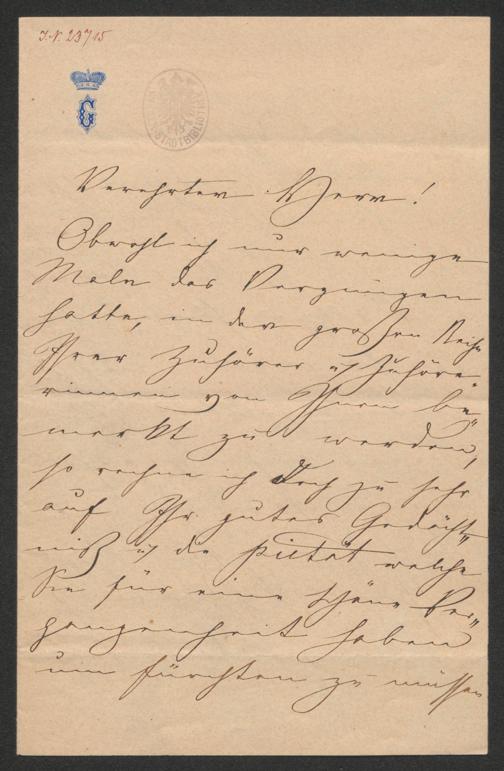 I.N. 23715
G
Verehrter Herr!
Obwohl ich nur wenige
Male das Vergnügen
hatte, in der großen Reihe
Ihrer Zuhörer u. Zuhöre-
rinnen von Ihnen be-
merkt zu werden,
so rechne ich doch zu sehr
auf Ihr gutes Gedächt-
niß u. die Pietät welche
Sie für eine schöne Ver-
gangenheit haben
um fürchten zu müssen